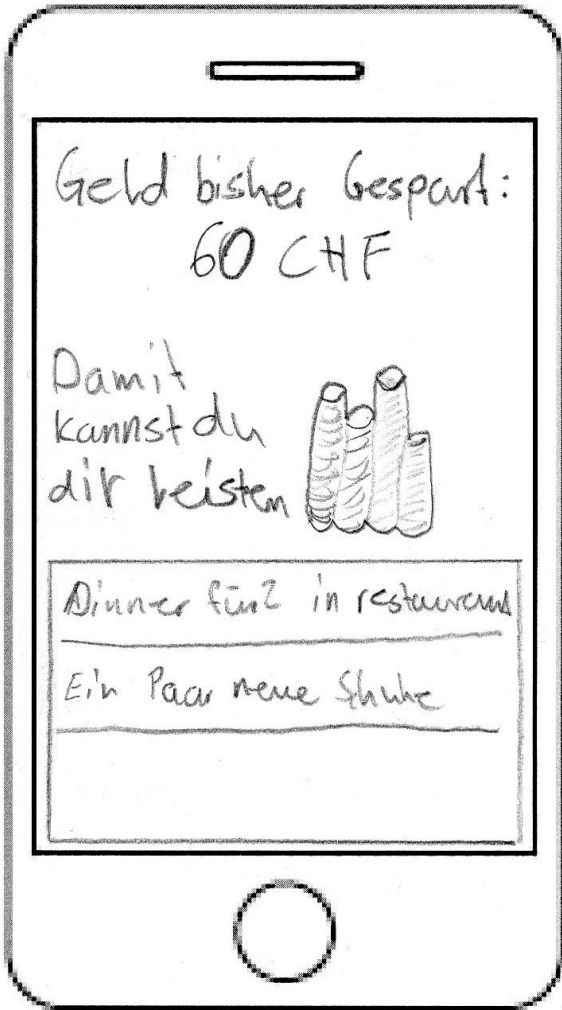 Geld bisher Gespart:
60 CHF
Damit
kannst du
dir leisten
Dinner für 2 in restaurant
Ein Paar neue Schuhe